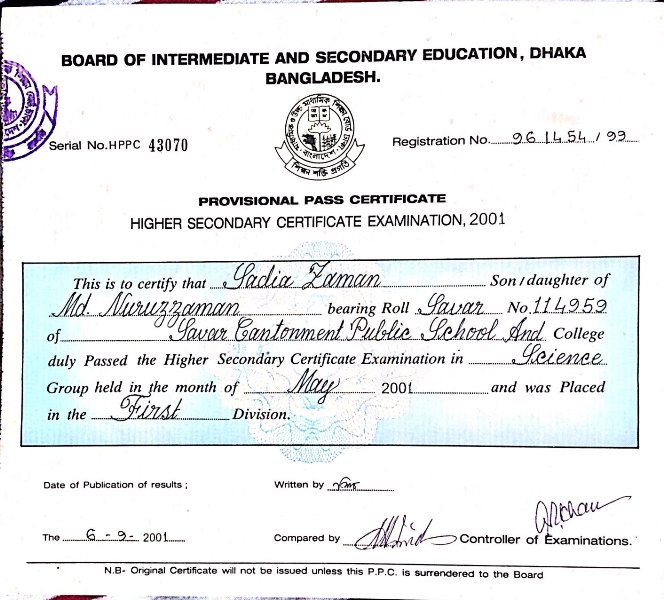 BOARD OF INTERMEDIATE AND SECONDARY EDUCATION, DHAKA
BANGLADESH.
Serial No.HPPC 43070
Registration No. 961454 / 99
PROVISIONAL PASS CERTIFICATE
HIGHER SECONDARY CERTIFICATE EXAMINATION, 2001
This is to certify that Sadia Zaman Son/daughter of
Md. Nuruzzaman bearing Roll Savar No. 114959
of Savar Cantonment Public School And College
duly Passed the Higher Secondary Certificate Examination in Science
Group held in the month of May 2001 and was Placed
in the First Division.
Date of Publication of results ;
Written by
The 6 - 9 - 2001
Compared by
Controller of Examinations.
N.B- Original Certificate will not be issued unless this P.P.C. is surrendered to the Board